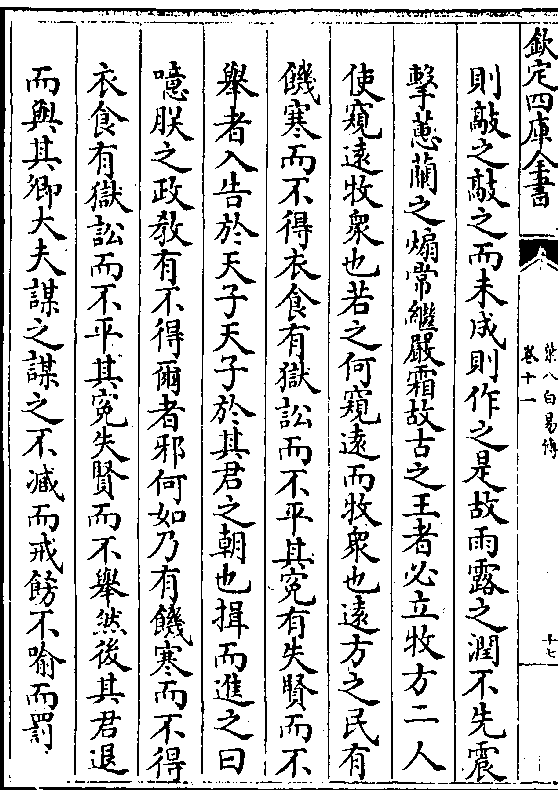 欽定四庫全書
葉八白易傳
卷十一
十七
則敲之敲之而未成則作之是故雨露之潤不先震
擊蕙蘭之煽常繼嚴霜故古之王者必立牧方二人
使窺遠牧衆也若之何窺遠而牧衆也遠方之民有
饑寒而不得衣食有獄訟而不平其寃有失賢而不
舉者入告於天子天子於其君之朝也揖而進之曰
噫朕之政教有不得爾者邪何如乃有饑寒而不得
衣食有獄訟而不平其寃失賢而不舉然後其君退
而與其卿大夫謀之謀之不臧而戒飭不喻而罰